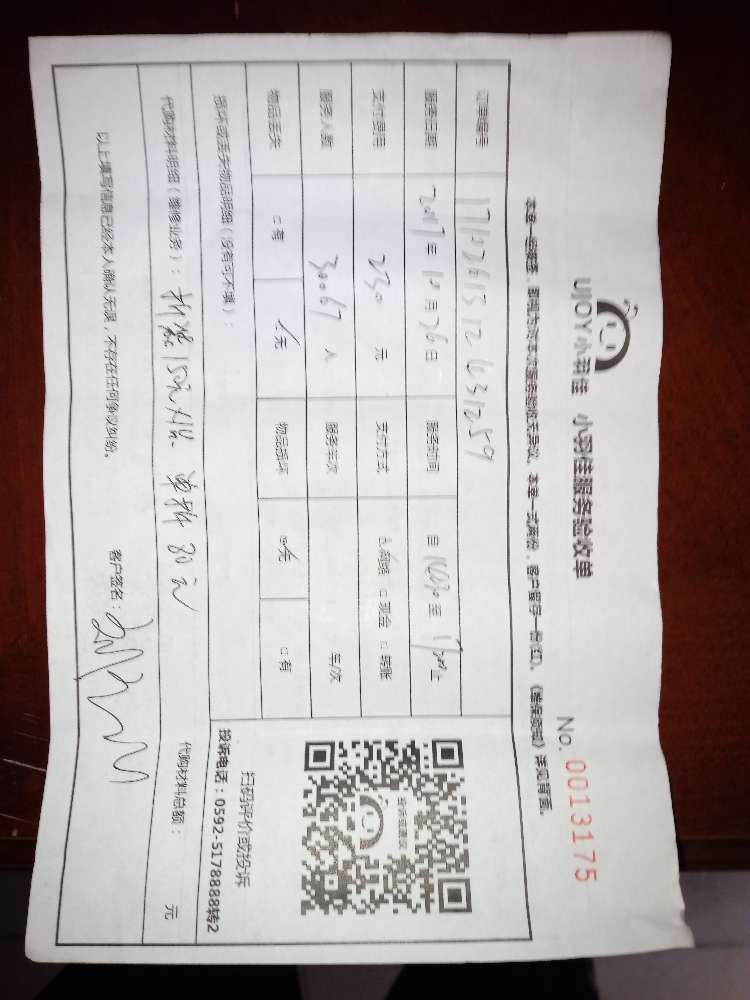 UJOY小羽佳 小羽佳服务验收单
No. 0013175
本单一经签署，即视为对本次服务验收无异议。本单一式两份，客户留存一份(红)。《维保须知》详见背面。
订单编号 1710261312631259
服务日期 2017年10月26日 服务时间 自 至
支付费用 230元 支付方式 网络 □现金 □转账
服务人数 人 服务车次 车/次
物品丢失 □有 无 物品损坏 无 □有
损坏或丢失物品明细（没有可不填）：
扫码评价或投诉
投诉电话：0592-5178888转2
代购材料明细（维修业务）： 150元 80元
代购材料总额： 元
以上填写信息已经本人确认无误，不存在任何争议纠纷。 客户签名：